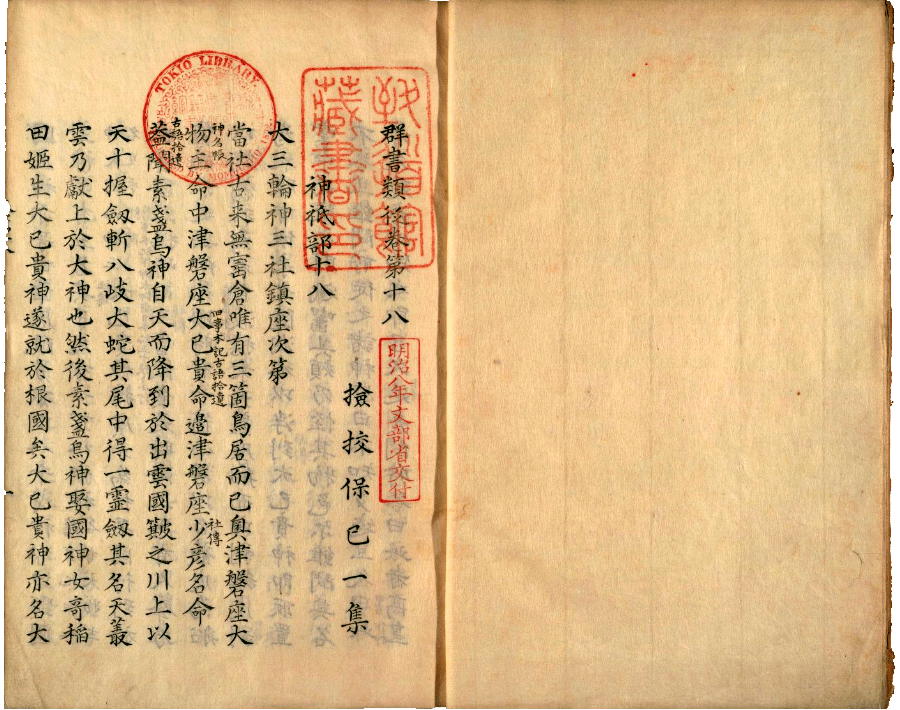 群書類従巻第十八
撿挍保己一集
神祇部十八
大三輪神三社鎮座次第
當社古来無寳倉唯有三箇鳥居而已奥津磐座大
神名帳
物主命中津磐座大已貴命邉津磐座少彦名命
旧事本記古語拾遺
社傳
古語拾遺
葢聞素戔烏神自天而降到於出雲國簸之川上以
天十握劔斬八岐大蛇其尾中得一霊劔其名天叢
雲乃獻上於大神也然後素戔烏神娶國神女竒稲
田姫生大已貴神遂就於根國矣大已貴神亦名大
明治八年文部省交付
藏書
TOKIO LIBRARY